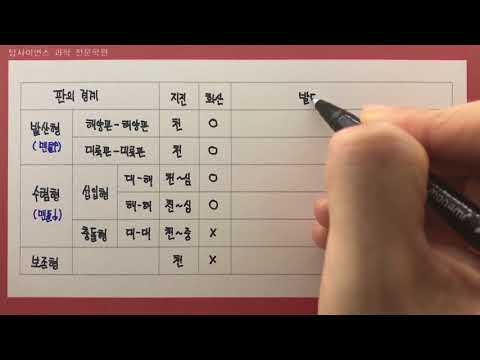 탑사이언스 과학 전문학원
판의 경계 지진 화산 발ㄷ
발산형 해양판-해양판 천 O
(맨틀↑) 대륙판-대륙판 천 O
수렴형 섭입형 대-해 천~심 O
(맨틀↓) 해-해 천~심 O
충돌형 대-대 천~중 X
보존형 천 X